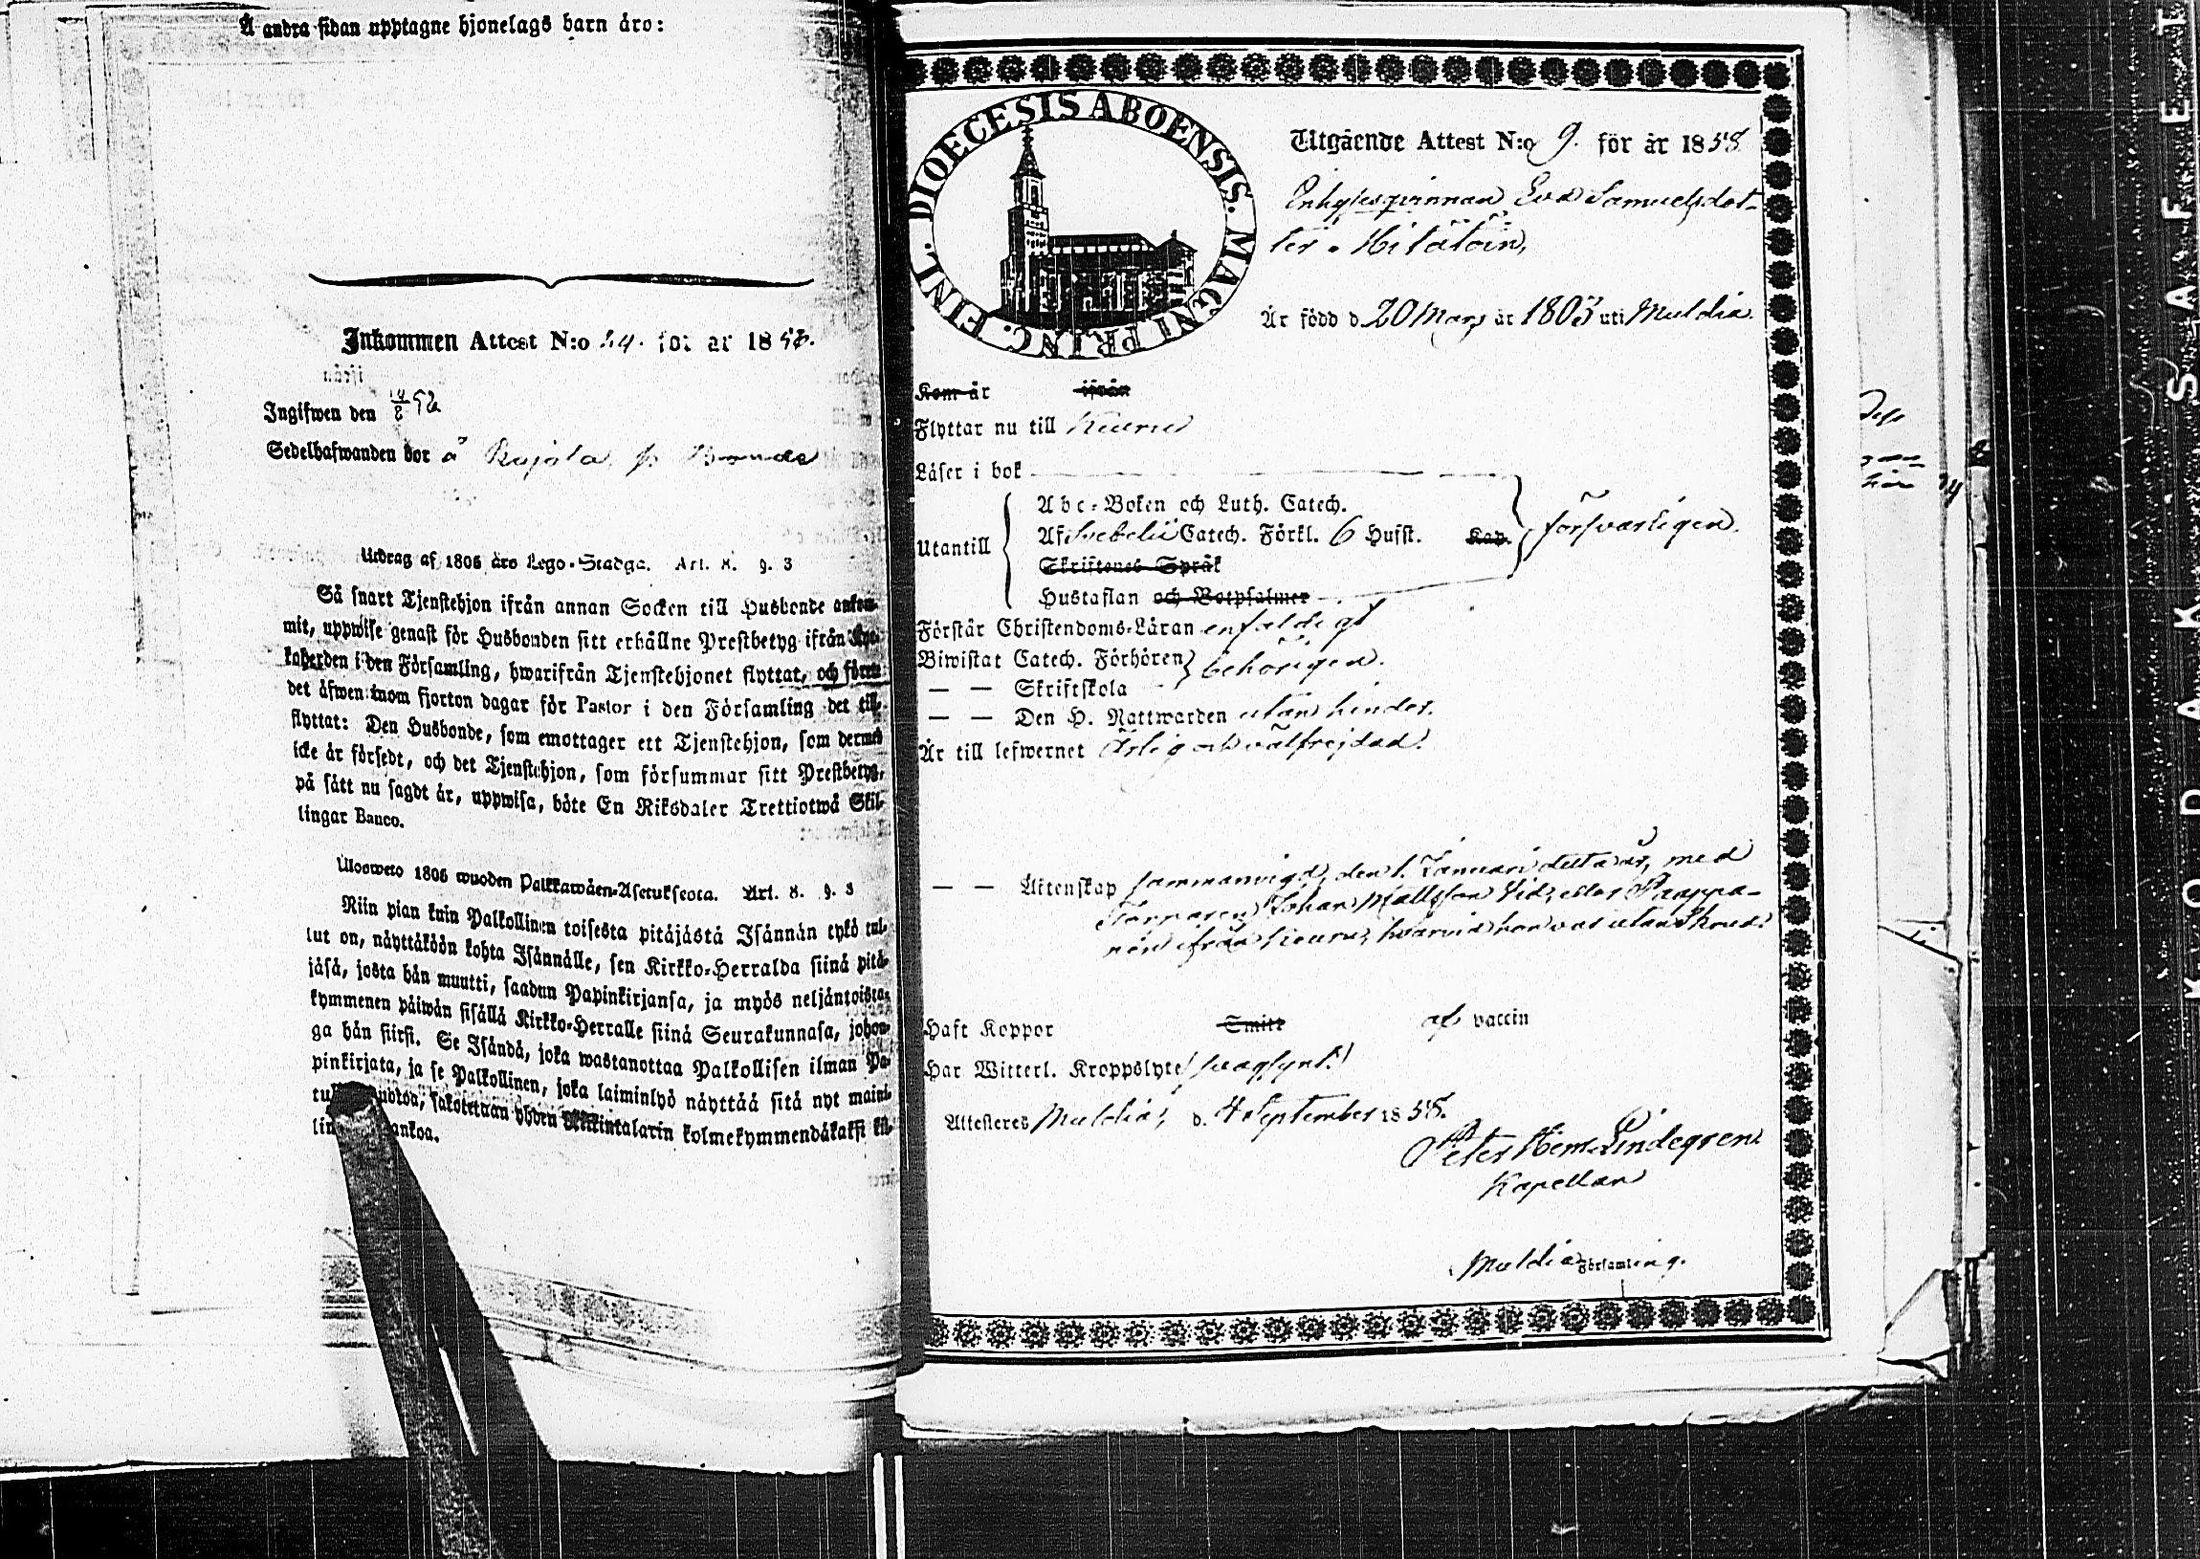 Å andra sidan upptagne hjonelags barn äro:
Inkommen Attest N:o 54. för år 1858.
ifrån
Ingifwen den 58
Sedelhafwanden bor å Rajala
Utdrag af 1805 års Lego-Stadga. Art. 8. §. 3
Så snart Tjenstehjon ifrån annan Socken till Husbonde ankom-
mit, uppwise genast för Husbonden sitt erhållne Prestbetyg ifrån Kyr-
koherden i den Församling, hwarifrån Tjenstehjonet flyttat, och förete
det äfwen inom fjorton dagar för Pastor i den Församling det till-
flyttat: Den Husbonde, som emottager ett Tjenstehjon, som dermed
icke är försedt, och det Tjenstehjon, som försummar sitt Prestbetyg,
på sätt nu sagdt är, uppwisa, böte En Riksdaler Trettiotwå Skil-
lingar Banco.
Ulosweto 1805 wuoden Palkkawäen-Asetuksesta. Art. 8. §. 3
Niin pian kuin Palkollinen toisesta pitäjästä Isännän tykö tul-
lut on, näyttäköön kohta Isännälle, sen Kirkko-Herralda siinä pitä-
jäsä, josta hän muutti, saadun Papinkirjansa, ja myös neljäntoista-
kymmenen päiwän sisällä Kirkko-Herralle siinä Seurakunnasa, johon-
ga hän siirsi. Se Isändä, joka wastanottaa Palkollisen ilman Pa-
pinkirjata, ja se Palkollinen, joka laiminlyö näyttää sitä nyt maini-
tulla muotoa, sakotetaan yhden Riikintalarin kolmekymmendäkaksi kil-
lingiä Bankoa.
DIOECESIS ABOENSIS. MAGNI PRINC. FINL.
Utgående Attest N:o 9. för år 1858
Enhysesqvinnan Eva Samuelsdot-
ter Hitätöin,
Är född d. 20 Mars år 1803 uti Muldia.
Kom år ifrån
Flyttar nu till Keuru
Läser i bok
Utantill
Abc-Boken och Luth. Catech.
Af Svebelii Catech. Förkl. 6 Hufst. Kap. försvarligen.
Skriftenes Språk
Hustaflan och Botpsalmer
Förstår Christendoms-Läran enfaldigt
Biwistat Catech. Förhören behörigen.
— — Skriftskola
— — Den H. Nattwarden utan hinder.
Är till lefwernet Ärlig och välfrejdad.
— — Äktenskap sammanvigd, den 1. Januari detta år, med
Torparen Johan Mattsson Sid, eller Paappa-
nen ifrån Keuru, hvarvid hon var utan
Haft Koppor Smitt af vaccin
Har Witterl. Kroppslyte svagsynt.
Attesteras Muldia, d. 4 September 1858.
Peter Hem. Lindegren.
Kapellan
Muldia Församling.
KODAK SAFETY